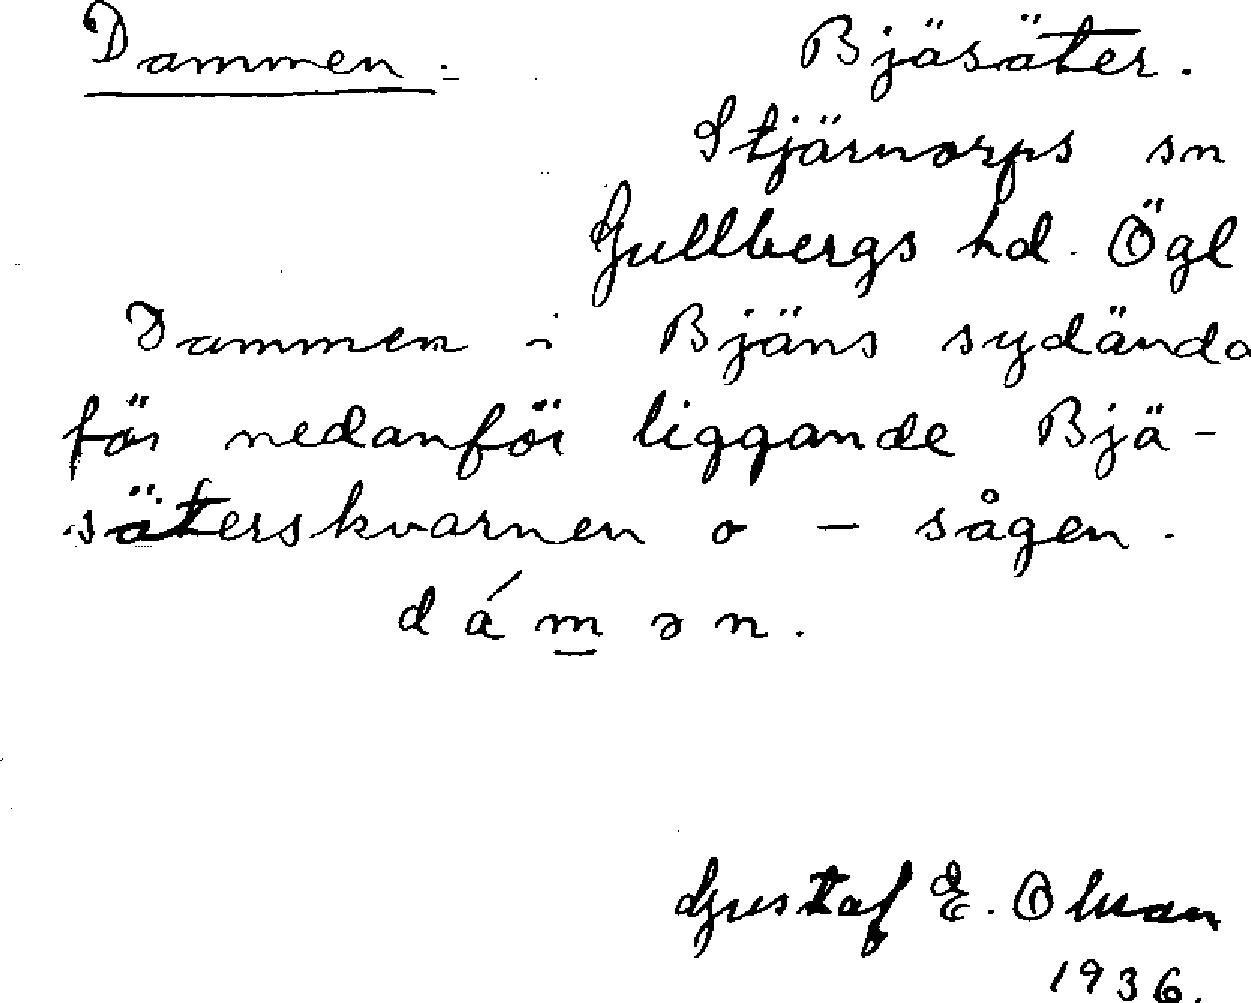 Dammen. Bjäsäter.
Stjärnorps sn
Gullbergs hd. Ögl
Dammen i Bjäns sydända
för nedanför liggande Bjä-
säterskvarnen o - sågen.
dámən.
Gustaf E. Olsson
1936.